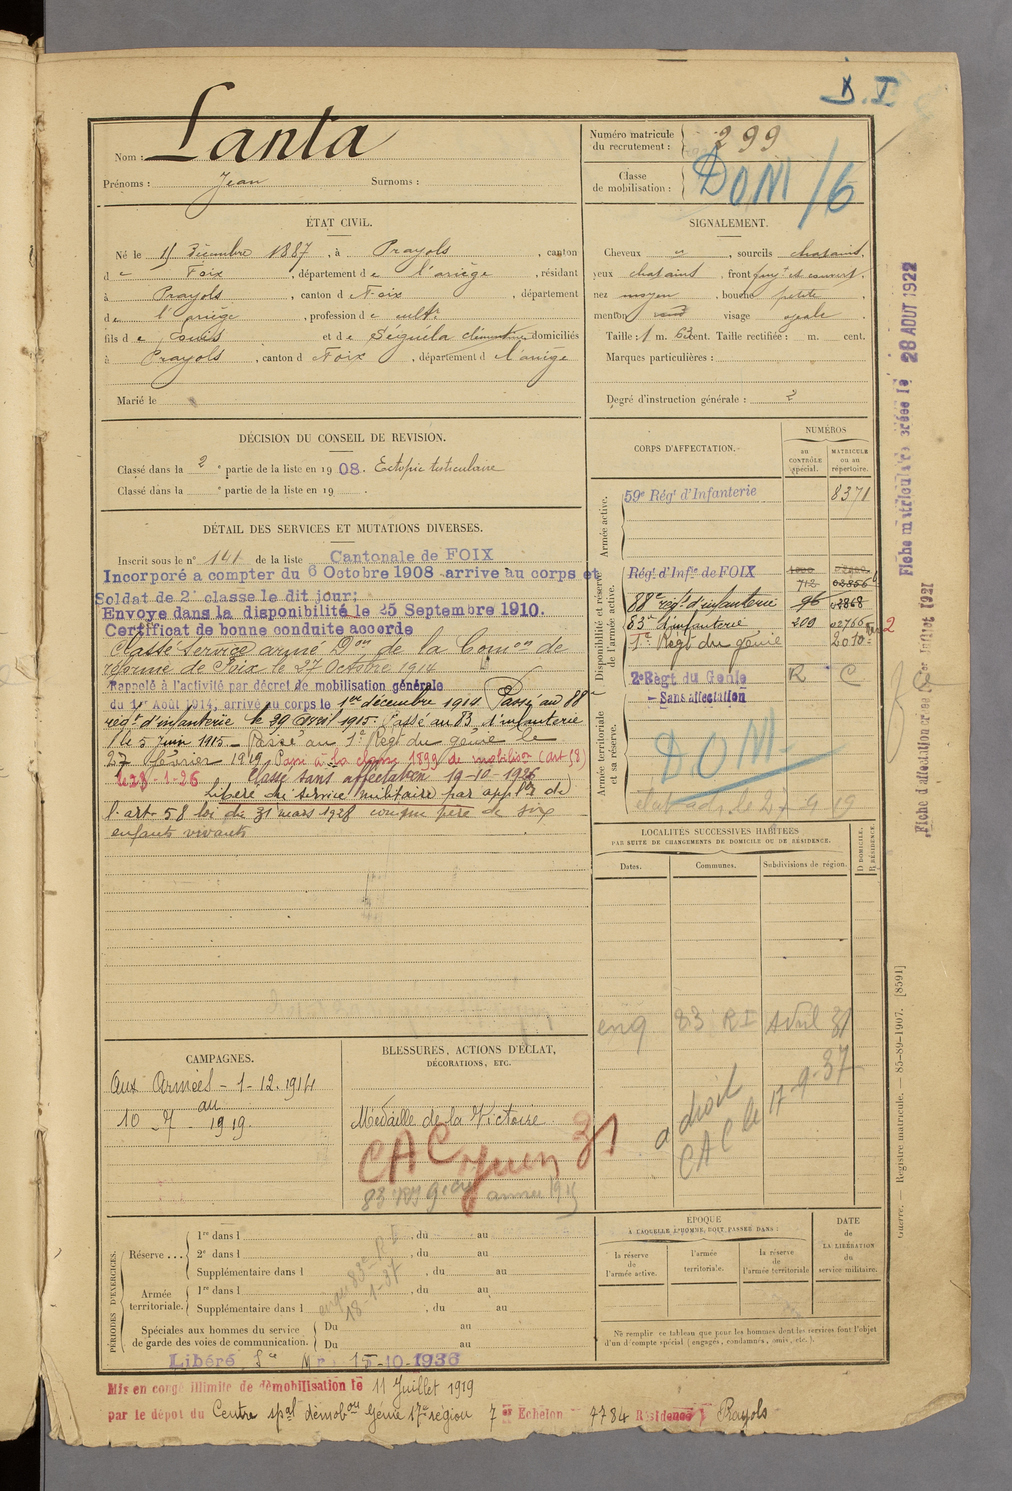 D. I
Nom : Lanta
Prénoms : Jean Surnoms :
Numéro matricule du recrutement : 299
Classe de mobilisation :
DOM /6
ÉTAT CIVIL.
Né le 15 Décembre 1887, à Prayols, canton
de Foix, département de l'ariège, résidant
à Prayols, canton d Foix, département
de l'ariège, profession de cultr
fils de Louis et de Séguéla clémentine domiciliés
à Prayols, canton d Foix, département d l'ariège
Marié le
SIGNALEMENT.
Cheveux , sourcils chatains
yeux chatains, front
nez moyen, bouche petite,
menton rond visage ovale.
Taille : 1 m. 63 cent. Taille rectifiée : m. cent.
Marques particulières :
Degré d'instruction générale : 2
DÉCISION DU CONSEIL DE REVISION.
Classé dans la 2e partie de la liste en 1908. Ectopie testiculaire
Classé dans la e partie de la liste en 19 .
DÉTAIL DES SERVICES ET MUTATIONS DIVERSES.
Inscrit sous le n° 141 de la liste Cantonale de FOIX
Incorporé a compter du 6 Octobre 1908 arrive au corps et
Soldat de 2e classe le dit jour;
Envoye dans la disponibilité le 25 Septembre 1910.
Certificat de bonne conduite accorde
Classé service armé Don de la Comon de
réforme de Foix le 27 Octobre 1914
Rappelé à l'activité par décret de mobilisation générale
du 1er Août 1914, arrivé au corps le 1er décembre 1914 Passé au 88e
régt d'infanterie le 29 Avril 1915. Passé au 83 d'infanterie
le 5 Juin 1915 - Passé au 1er Régt du génie le
27 février 1919, Passé à la classe 1899 de mobilison (art 58)
le 28-1-26 Classé sans affectation 19-10-1926
Libéré du service militaire par appl on de
l'art. 58 loi du 31 mars 1928 comme père de six
enfants vivants
CORPS D'AFFECTATION.
NUMÉROS
au CONTRÔLE spécial.
MATRICULE ou au répertoire.
Armée active.
59e Régt d'Infanterie 8371
Disponibilité et réserve de l'armée active.
Régt d'Infie de FOIX
712 02856
88e régt d'infanterie 96 02868
83e d'infanterie 200 02766
1er Régt du génie 2010
2e Régt du Génie R C
- Sans affectation
Armée territoriale et sa réserve.
DOM-
LOCALITÉS SUCCESSIVES HABITÉES
PAR SUITE DE CHANGEMENTS DE DOMICILE OU DE RÉSIDENCE.
Dates. Communes. Subdivisions de région. D DOMICILE. R RÉSIDENCE.
eng 83 RI Avril 31
a droit
CAC le 17-9-37
CAMPAGNES.
Aux Armées - 1-12.1914
au
10 - 7 - 1919.
BLESSURES, ACTIONS D'ÉCLAT,
DÉCORATIONS, ETC.
Médaille de la Victoire
CAC juin 31
PÉRIODES D'EXERCICES.
Réserve ... 1re dans l , du au
2e dans l , du au
Supplémentaire dans l , du au
Armée territoriale. 1re dans l , du au
Supplémentaire dans l , du au
Spéciales aux hommes du service de garde des voies de communication. Du au
Du au
83e R I
18-1-37
ÉPOQUE
À LAQUELLE L'HOMME DOIT PASSER DANS :
la réserve de l'armée active.
l'armée territoriale.
la réserve de l'armée territoriale
DATE de LA LIBÉRATION du service militaire.
No remplir ce tableau que pour les hommes dont les services font l'objet
d'un compte spécial (engagés, condamnés, omis, etc.).
Libéré Sce Mre 15-10-1936
Mis en congé illimité de démobilisation le 11 Juillet 1919
par le dépot du Centre spal démobon Génie 17e région 7e Echelon 7784 Résidence Prayols
Fiche matriculaire créée le 28 AOUT 1922
Fiche d'affectation créée le 1er Juillet 1921
Guerre. Registre matricule. — 85-89-1907. [8591]